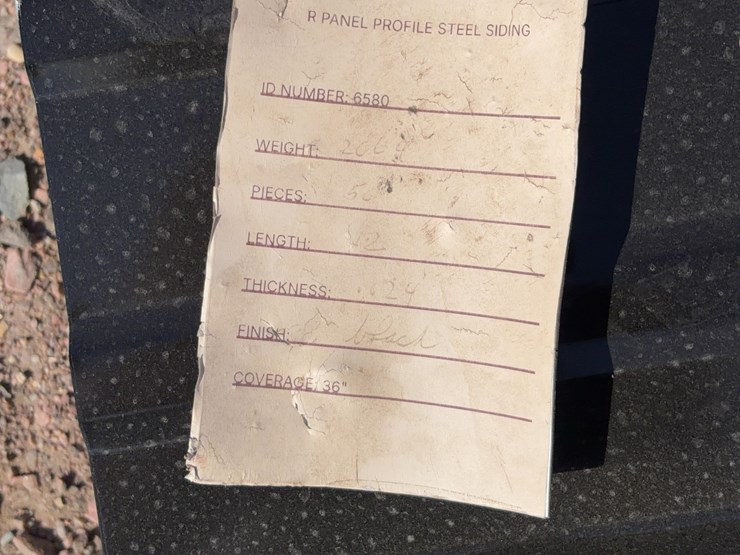 R PANEL PROFILE STEEL SIDING
ID NUMBER: 6580
WEIGHT:
PIECES:
LENGTH:
THICKNESS: 24
FINISH: black
COVERAGE: 36"